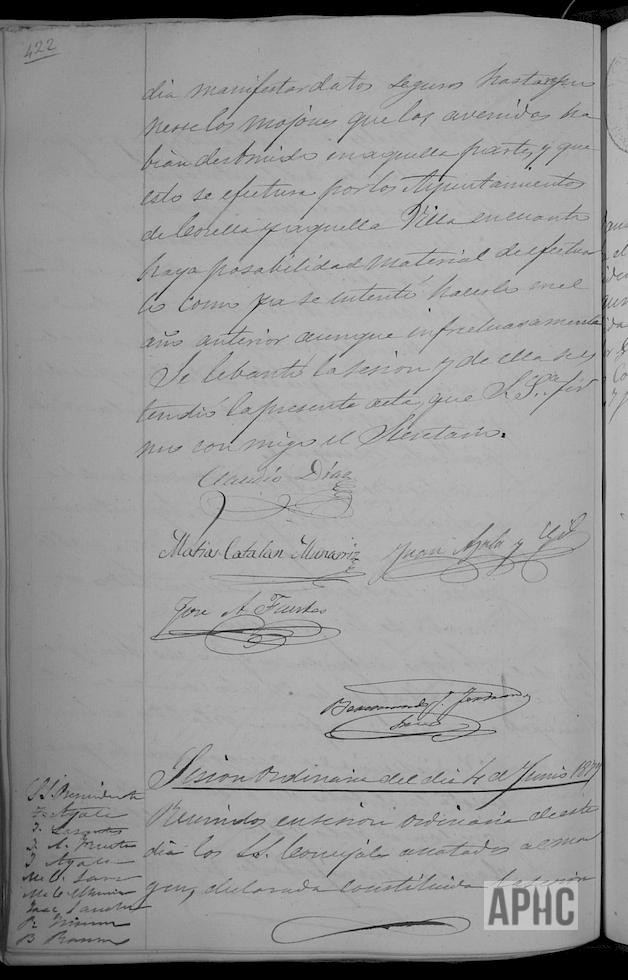 422
dia manifestar datos seguros hasta que
nesse los mojones que las avenidas ha
bian destruido en aquella parte, y que
esto se efectura por los Ayuntamientos
de Corella y aquella Villa en cuanto
haya posabilidad material de efectuar
lo como ya se intentó hacerlo en el
año anterior aunque infructuosamente
Se lebantó la sesion y de ella se es
tendió la presente acta, que S. Sª fir
mo con migo el Secretario.
Claudio Diaz
Matias Catalan Munarriz
Juan Ayala y Gil
Jose A. Fuertes
Sesion ordinaria del dia 4 de Junio 1877
SS. Presidente
Ayala
A. Fuertes
Ayala
Reunidos en sesion ordinaria de este
dia los SS. Concejales anotados al mar
gen, declarada constituida la sesion
APHC